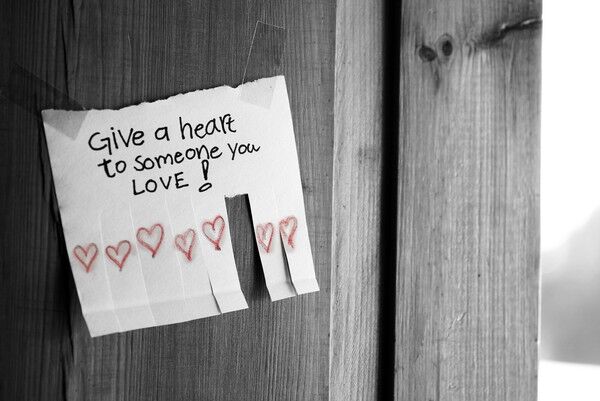 Give a heart
to someone you
LOVE!